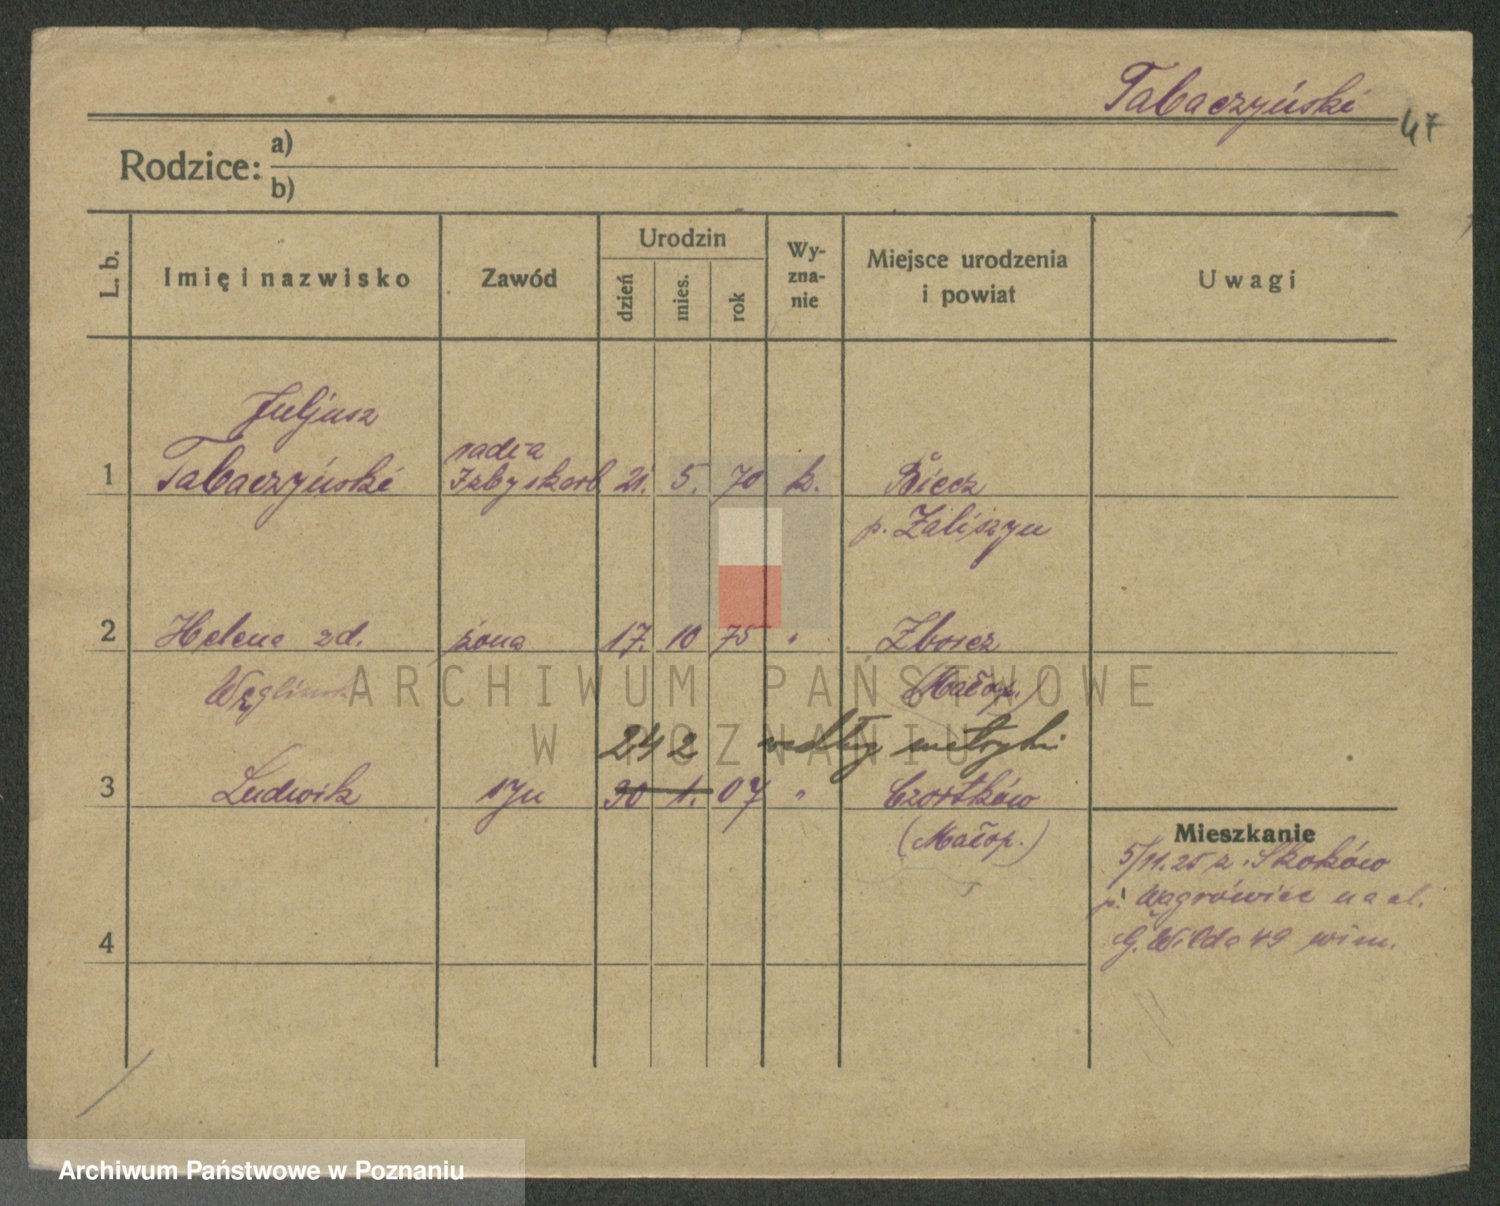 Tabaczyński
47
Rodzice: a)
b)
L. b. Imię i nazwisko Zawód Urodzin dzień mies. rok Wy-zna-nie Miejsce urodzenia i powiat Uwagi
Juljusz
1 Tabaczyński radca Izby skarb. 21. 5. 70 k. Biecz
p.
2 Helena zd. żona 17. 10 75 " Zborcz
(Małop.)
242 według metryki
3 Ludwik syn 30 1. 07 " Czortków
(Małop.)
Mieszkanie
5/11.25 z Skoków
p. Wągrówiec na al.
G. Wilda 49
4
ARCHIWUM PAŃSTWOWE
W POZNANIU
Archiwum Państwowe w Poznaniu